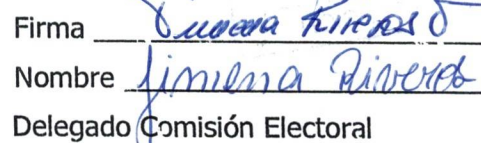 Firma Jimena Riveros
Nombre Jimena Riveros
Delegado Comisión Electoral